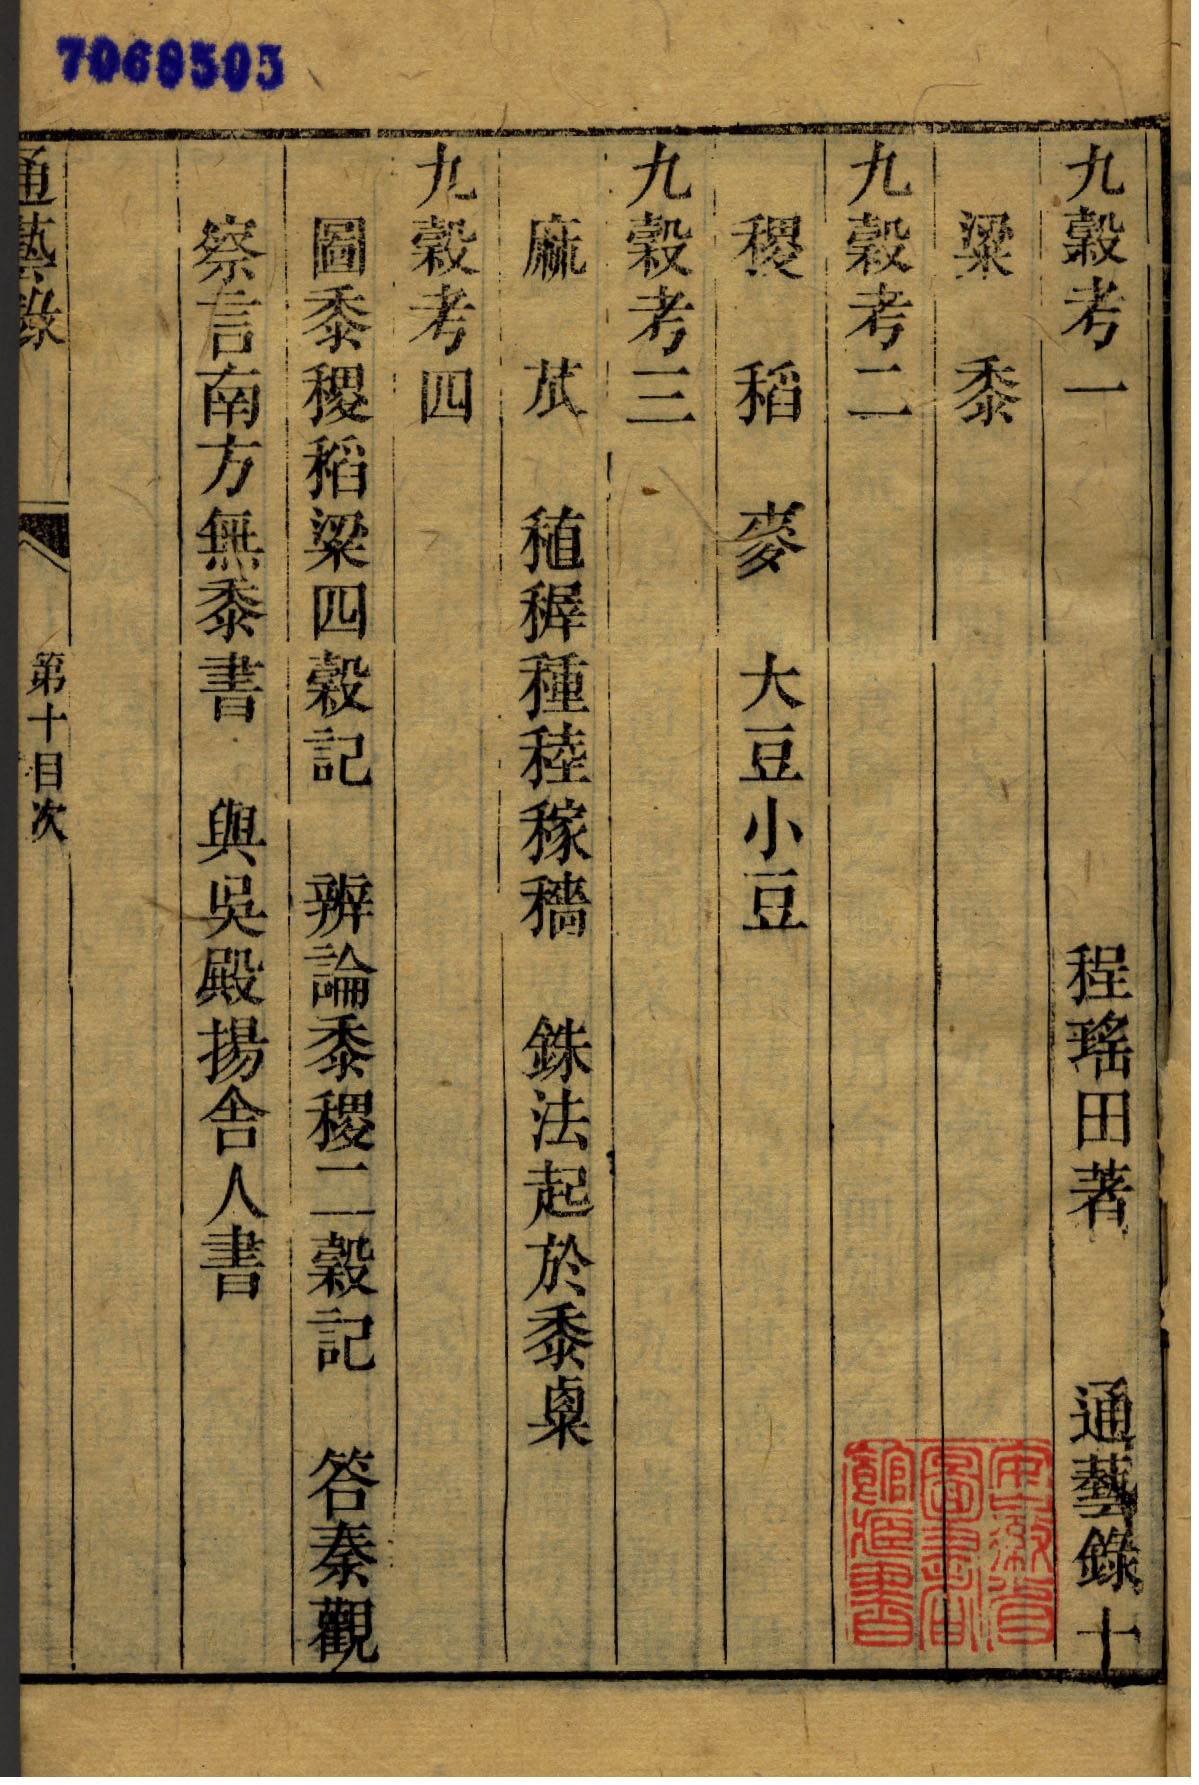 7060503
九穀考一　程瑤田著　通藝錄十
粱　黍
九穀考二
稷　稻　麥　大豆小豆
九穀考三
麻　苽　稙稺種稑稼穡　銖法起於黍㮚
九穀考四
圖黍稷稻粱四穀記　辨論黍稷二穀記　答秦觀
察言南方無黍書　與吳殿揚舍人書
通藝錄
第十目次
安徽省
圖書館
館藏書